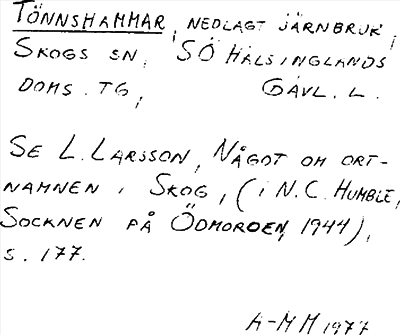 TÖNNSHAMMAR, NEDLAGT JÄRNBRUK,
SKOGS SN, SÖ HÄLSINGLANDS
DOMS. TG, GÄVL. L.
SE L. LARSSON, NÅGOT OM ORT-
NAMNEN I SKOG, (I N.C. HUMBLE,
SOCKNEN PÅ ÖDMORDEN, 1944),
S. 177.
A-M M 1977